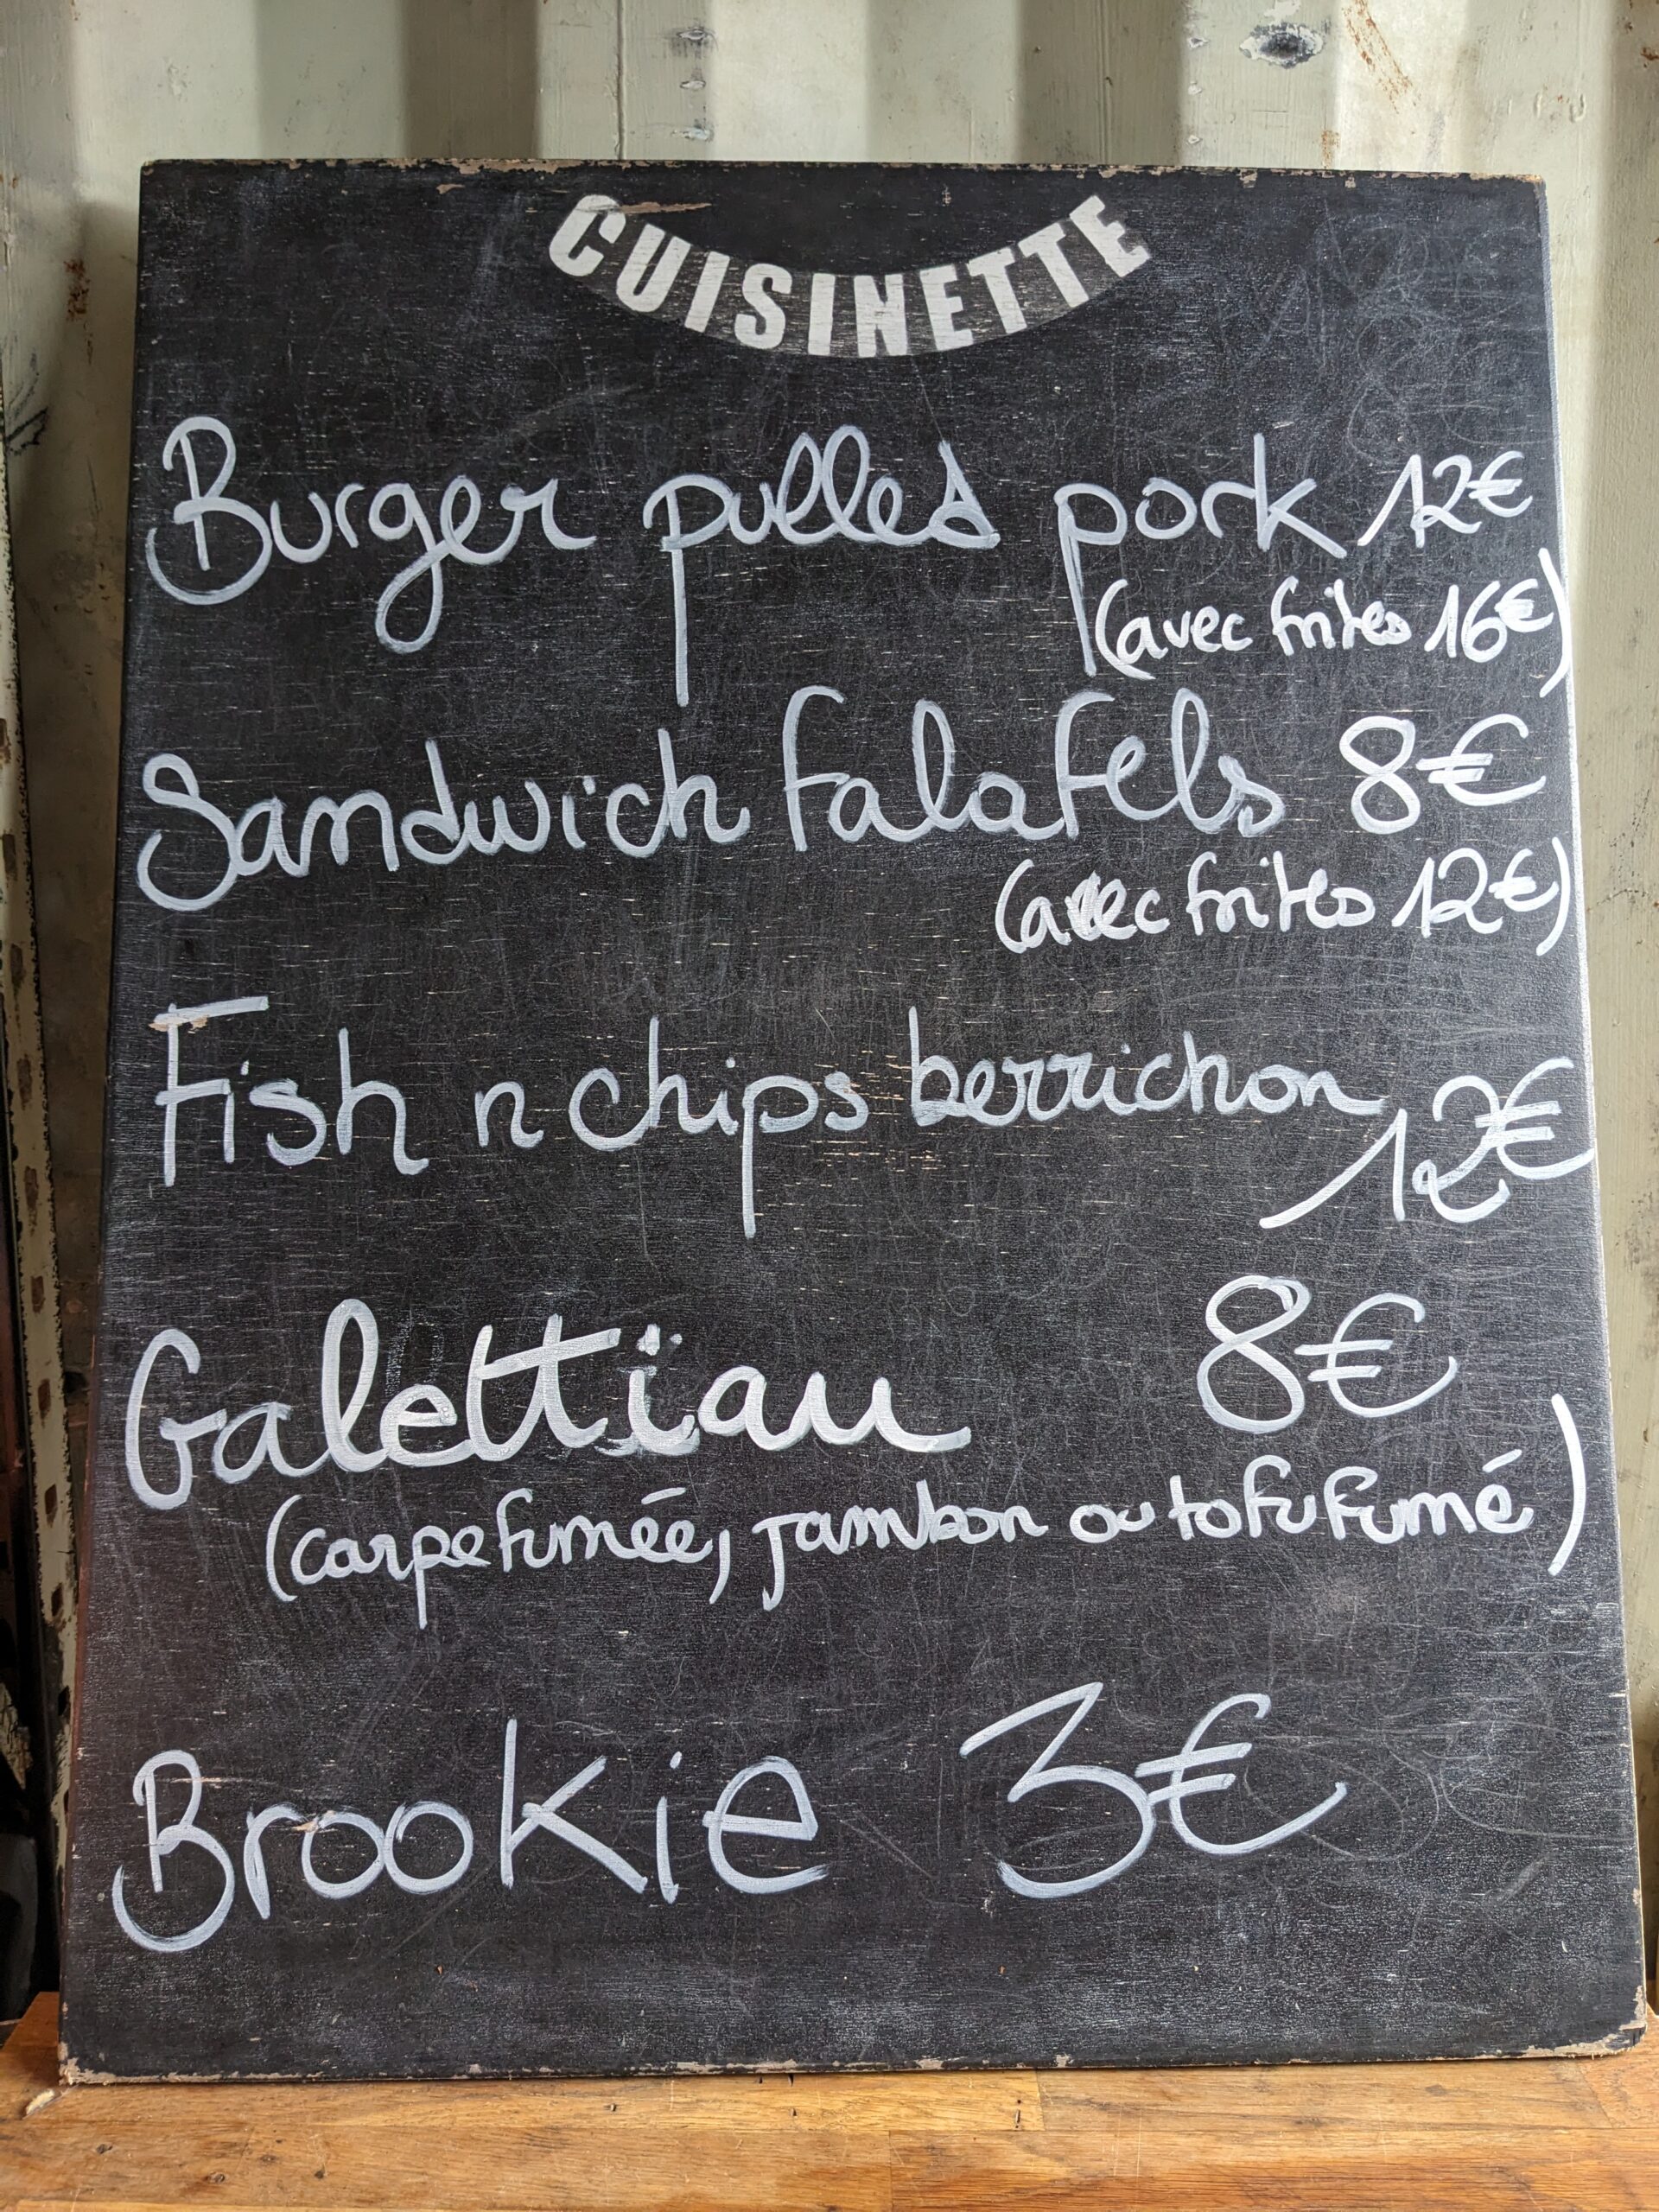 CUISINETTE
Burger pulled pork 12€
(avec frites 16€)
Sandwich falafels 8€
(avec frites 12€)
Fish n chips berrichon
12€
Galettïau 8€
(carpe fumée, jambon ou tofu fumé)
Brookie 3€